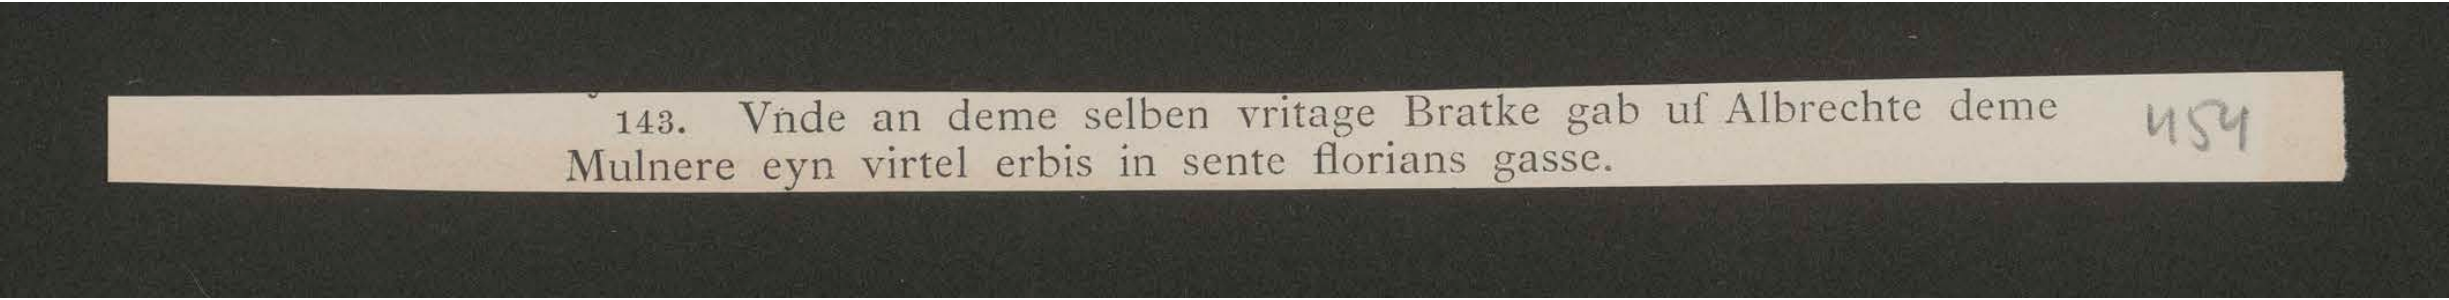 143. Vṅde an deme selben vritage Bratke gab uf Albrechte deme 454
Mulnere eyn virtel erbis in sente florians gasse.